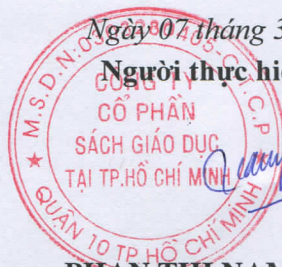 Ngày 07 tháng 3
Người thực hiệ
M.S.D.N:
C.T.C.P
CÔNG TY
CỔ PHẦN
SÁCH GIÁO DỤC
TẠI TP.HỒ CHÍ MINH
QUẬN 10 TP HỒ CHÍ MINH